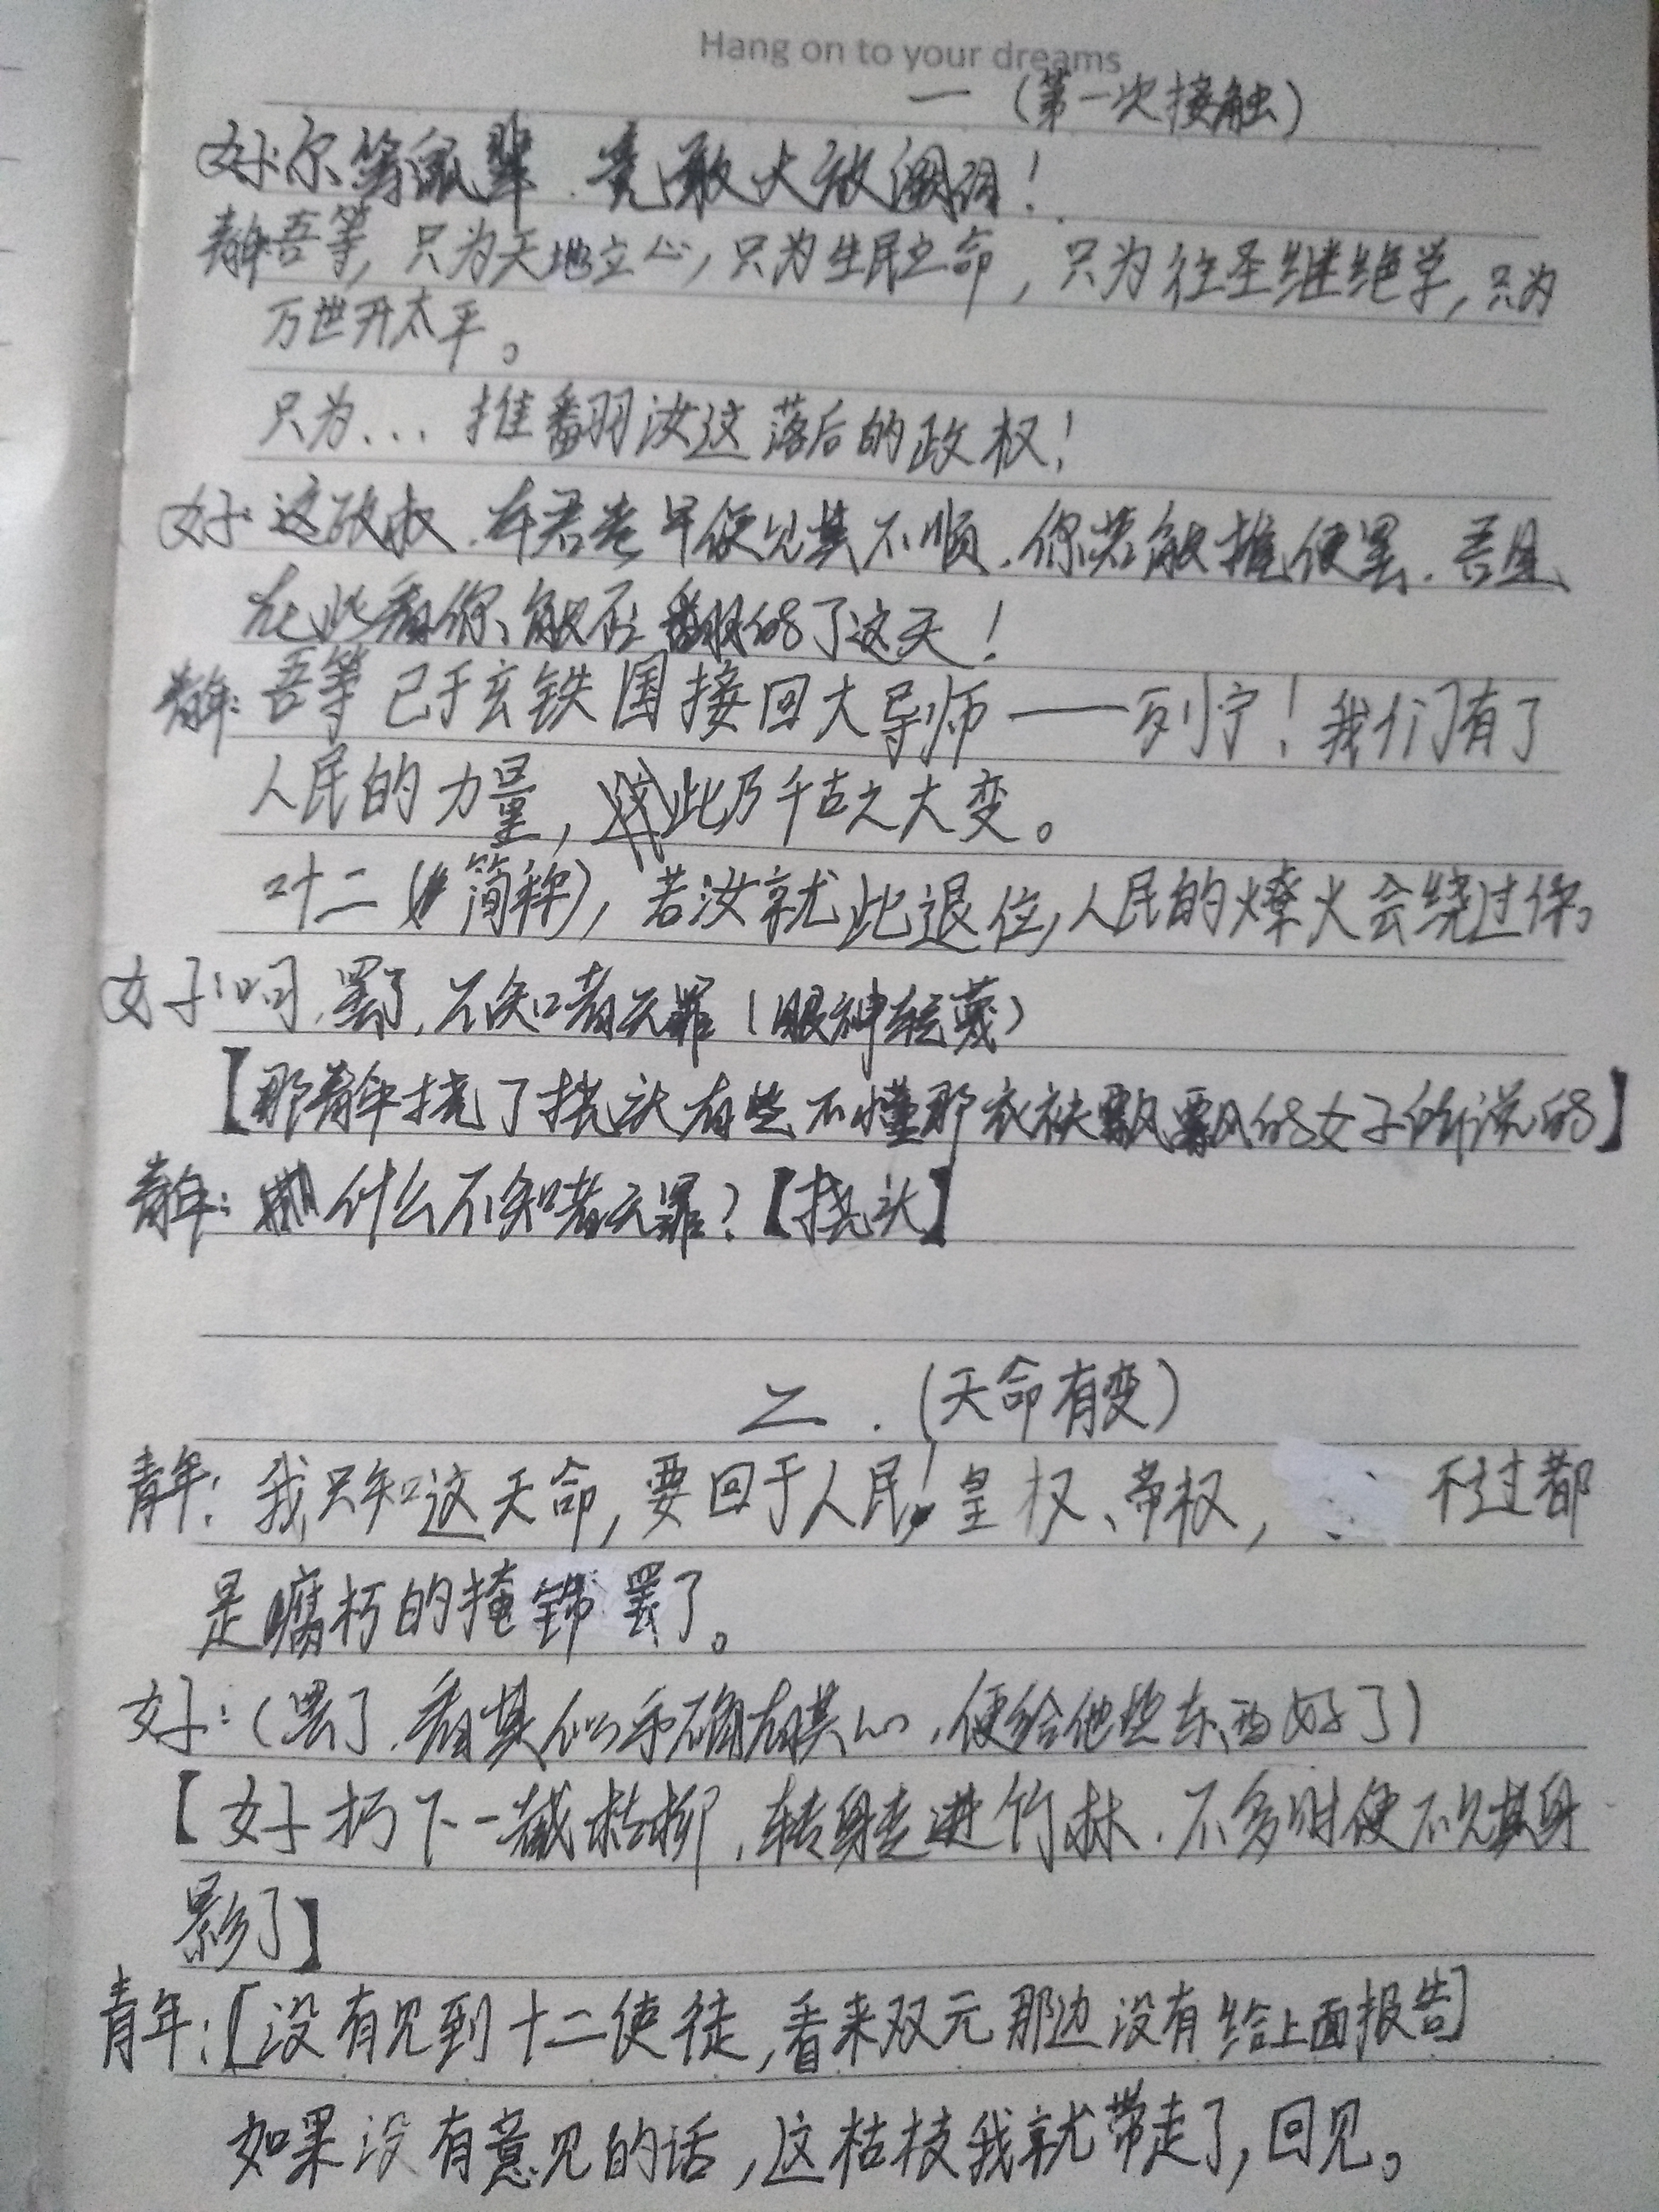 Hang on to your dreams
一（第一次接触）
女子:尔等鼠辈．竟敢大放厥词！
青年:吾等，只为天地立心，只为生民立命，只为往圣继绝学，只为
万世开太平。
只为... 推翻汝这落后的政权！
女子：这政权．本君老早便见其不顺．你若能推便罢．吾且
在此看你能否翻的了这天！
青年：吾等已于玄铁国接回大导师——列宁！我们有了
人民的力量，此乃千古之大变。
叶二（简称），若汝就此退位，人民的燎火会绕过你。
女子：呵．罢了．不知者无罪（眼神轻蔑）
【那青年挠了挠头有些不懂那衣袂飘飘的女子所说的】
青年：什么不知者无罪？【挠头】
二．（天命有变）
青年：我只知这天命，要回于人民！皇权、帝权， 不过都
是腐朽的掩饰罢了。
女子：（罢了．看其似乎确有其心．便给他些东西好了）
【女子折下一截枯柳．转身走进竹林．不多时便不见其身
影了】
青年：[没有见到十二使徒，看来双元那边没有给上面报告]
如果没有意见的话，这枯枝我就带走了，回见。